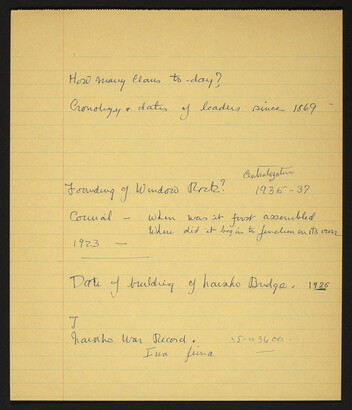 How many Clans to-day?
Cronoligy & dates of leaders since 1869 -
Centralization
Founding of Window Rock? 1935-37
Council - when was it first assembled
When did it begin to function on its own
1923 -
Date of building of Navaho Bridge. 1925
J
Navaho War Record. 3600
Iwa Jima